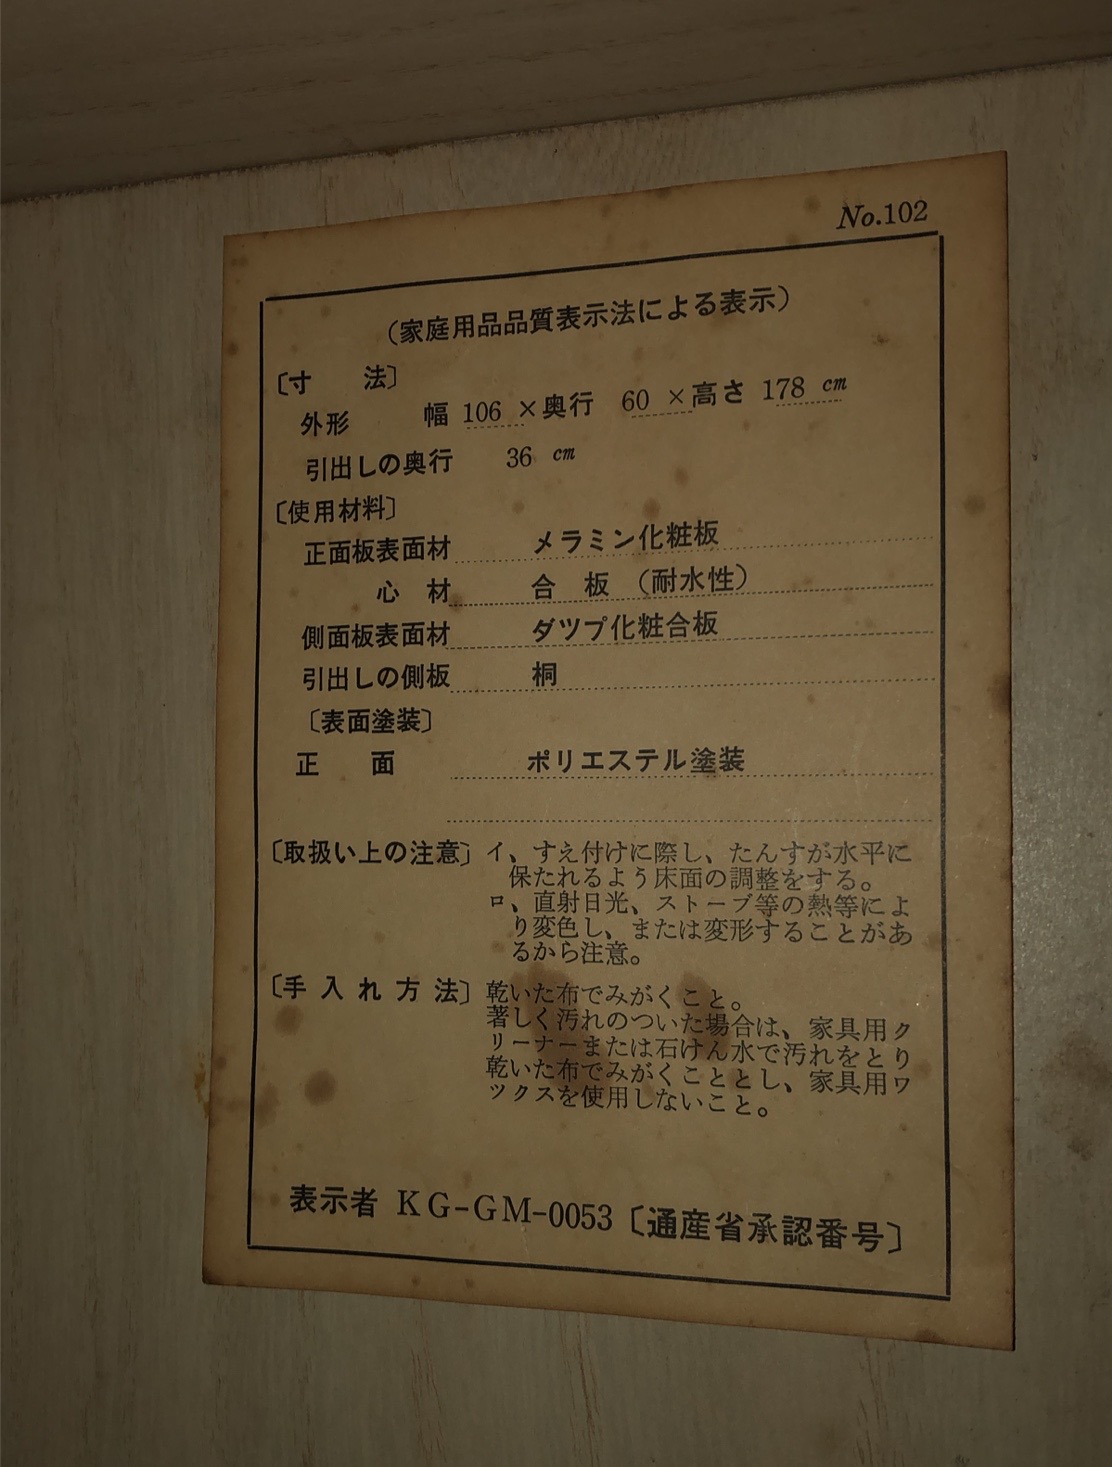 No.102
（家庭用品品質表示法による表示）
〔寸　法〕
外形　幅 106 ×奥行 60 ×高さ 178 cm
引出しの奥行 36 cm
〔使用材料〕
正面板表面材 メラミン化粧板
心材 合板（耐水性）
側面板表面材 ダツプ化粧合板
引出しの側板 桐
〔表面塗装〕
正面 ポリエステル塗装
〔取扱い上の注意〕イ、すえ付けに際し、たんすが水平に
保たれるよう床面の調整をする。
ロ、直射日光、ストーブ等の熱等によ
り変色し、または変形することがあ
るから注意。
〔手入れ方法〕乾いた布でみがくこと。
著しく汚れのついた場合は、家具用ク
リーナーまたは石けん水で汚れをとり
乾いた布でみがくこととし、家具用ワ
ックスを使用しないこと。
表示者 KG-GM-0053〔通産省承認番号〕